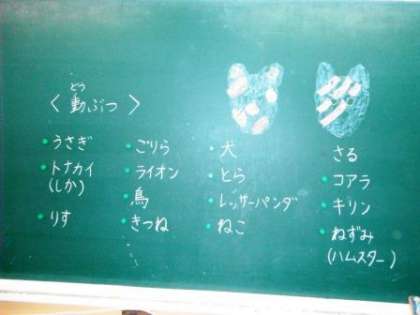 どう
〈動ぶつ〉
・うさぎ
・トナカイ
(しか)
・りす
・ごりら
・ライオン
・鳥
・きつね
・犬
・とら
・レッサーパンダ
・ねこ
さる
・コアラ
・キリン
・ねずみ
(ハムスター)